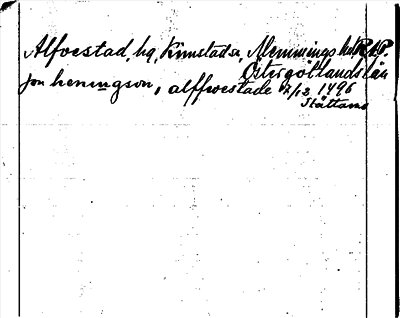 Alfvestad, hg, Kimstad sn, Memmings hd RAP.
Östergötlands län
jon heningson, alffwestade 17/12 1496
Skottans